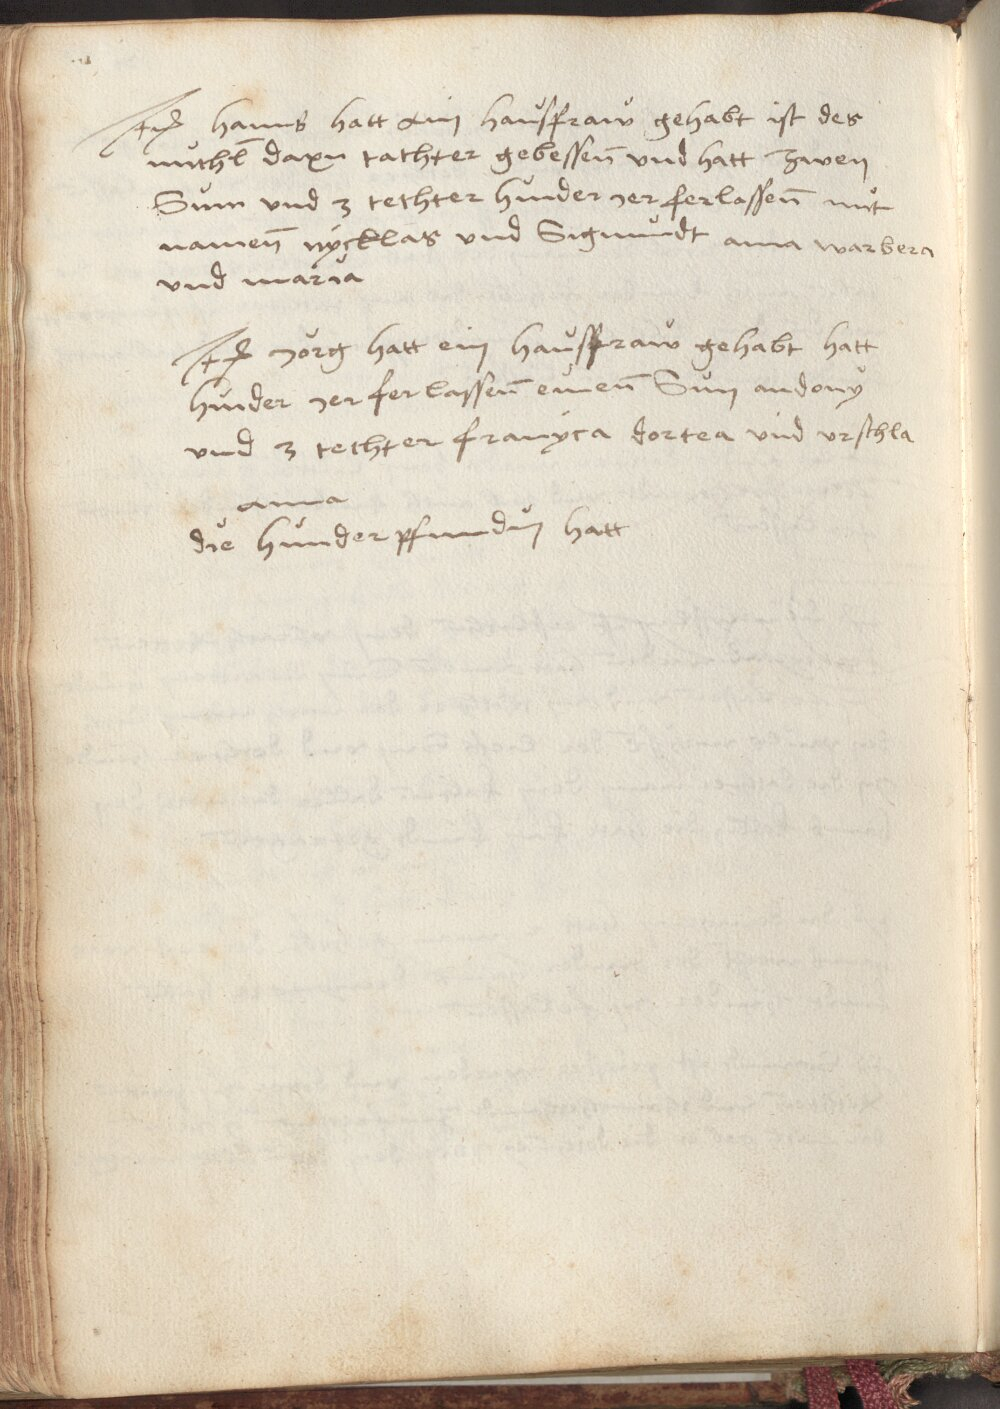 Itm hanns hatt ain hausfraw gehabt ist des
michl daxn tachter gebessenn vnd hatt zwen
Sum vnd 3 techter hinder ier ferlassenn mit
namenn nycklas vnd Sigmundt anna warbera
vnd maria
Itm Jorg hatt ein hausfraw gehabt hatt
hinder ier ferlassenn einenn Sun andony
vnd 3 techter franyca dortea vnd vrschla
anna
die hunderpfundin hatt